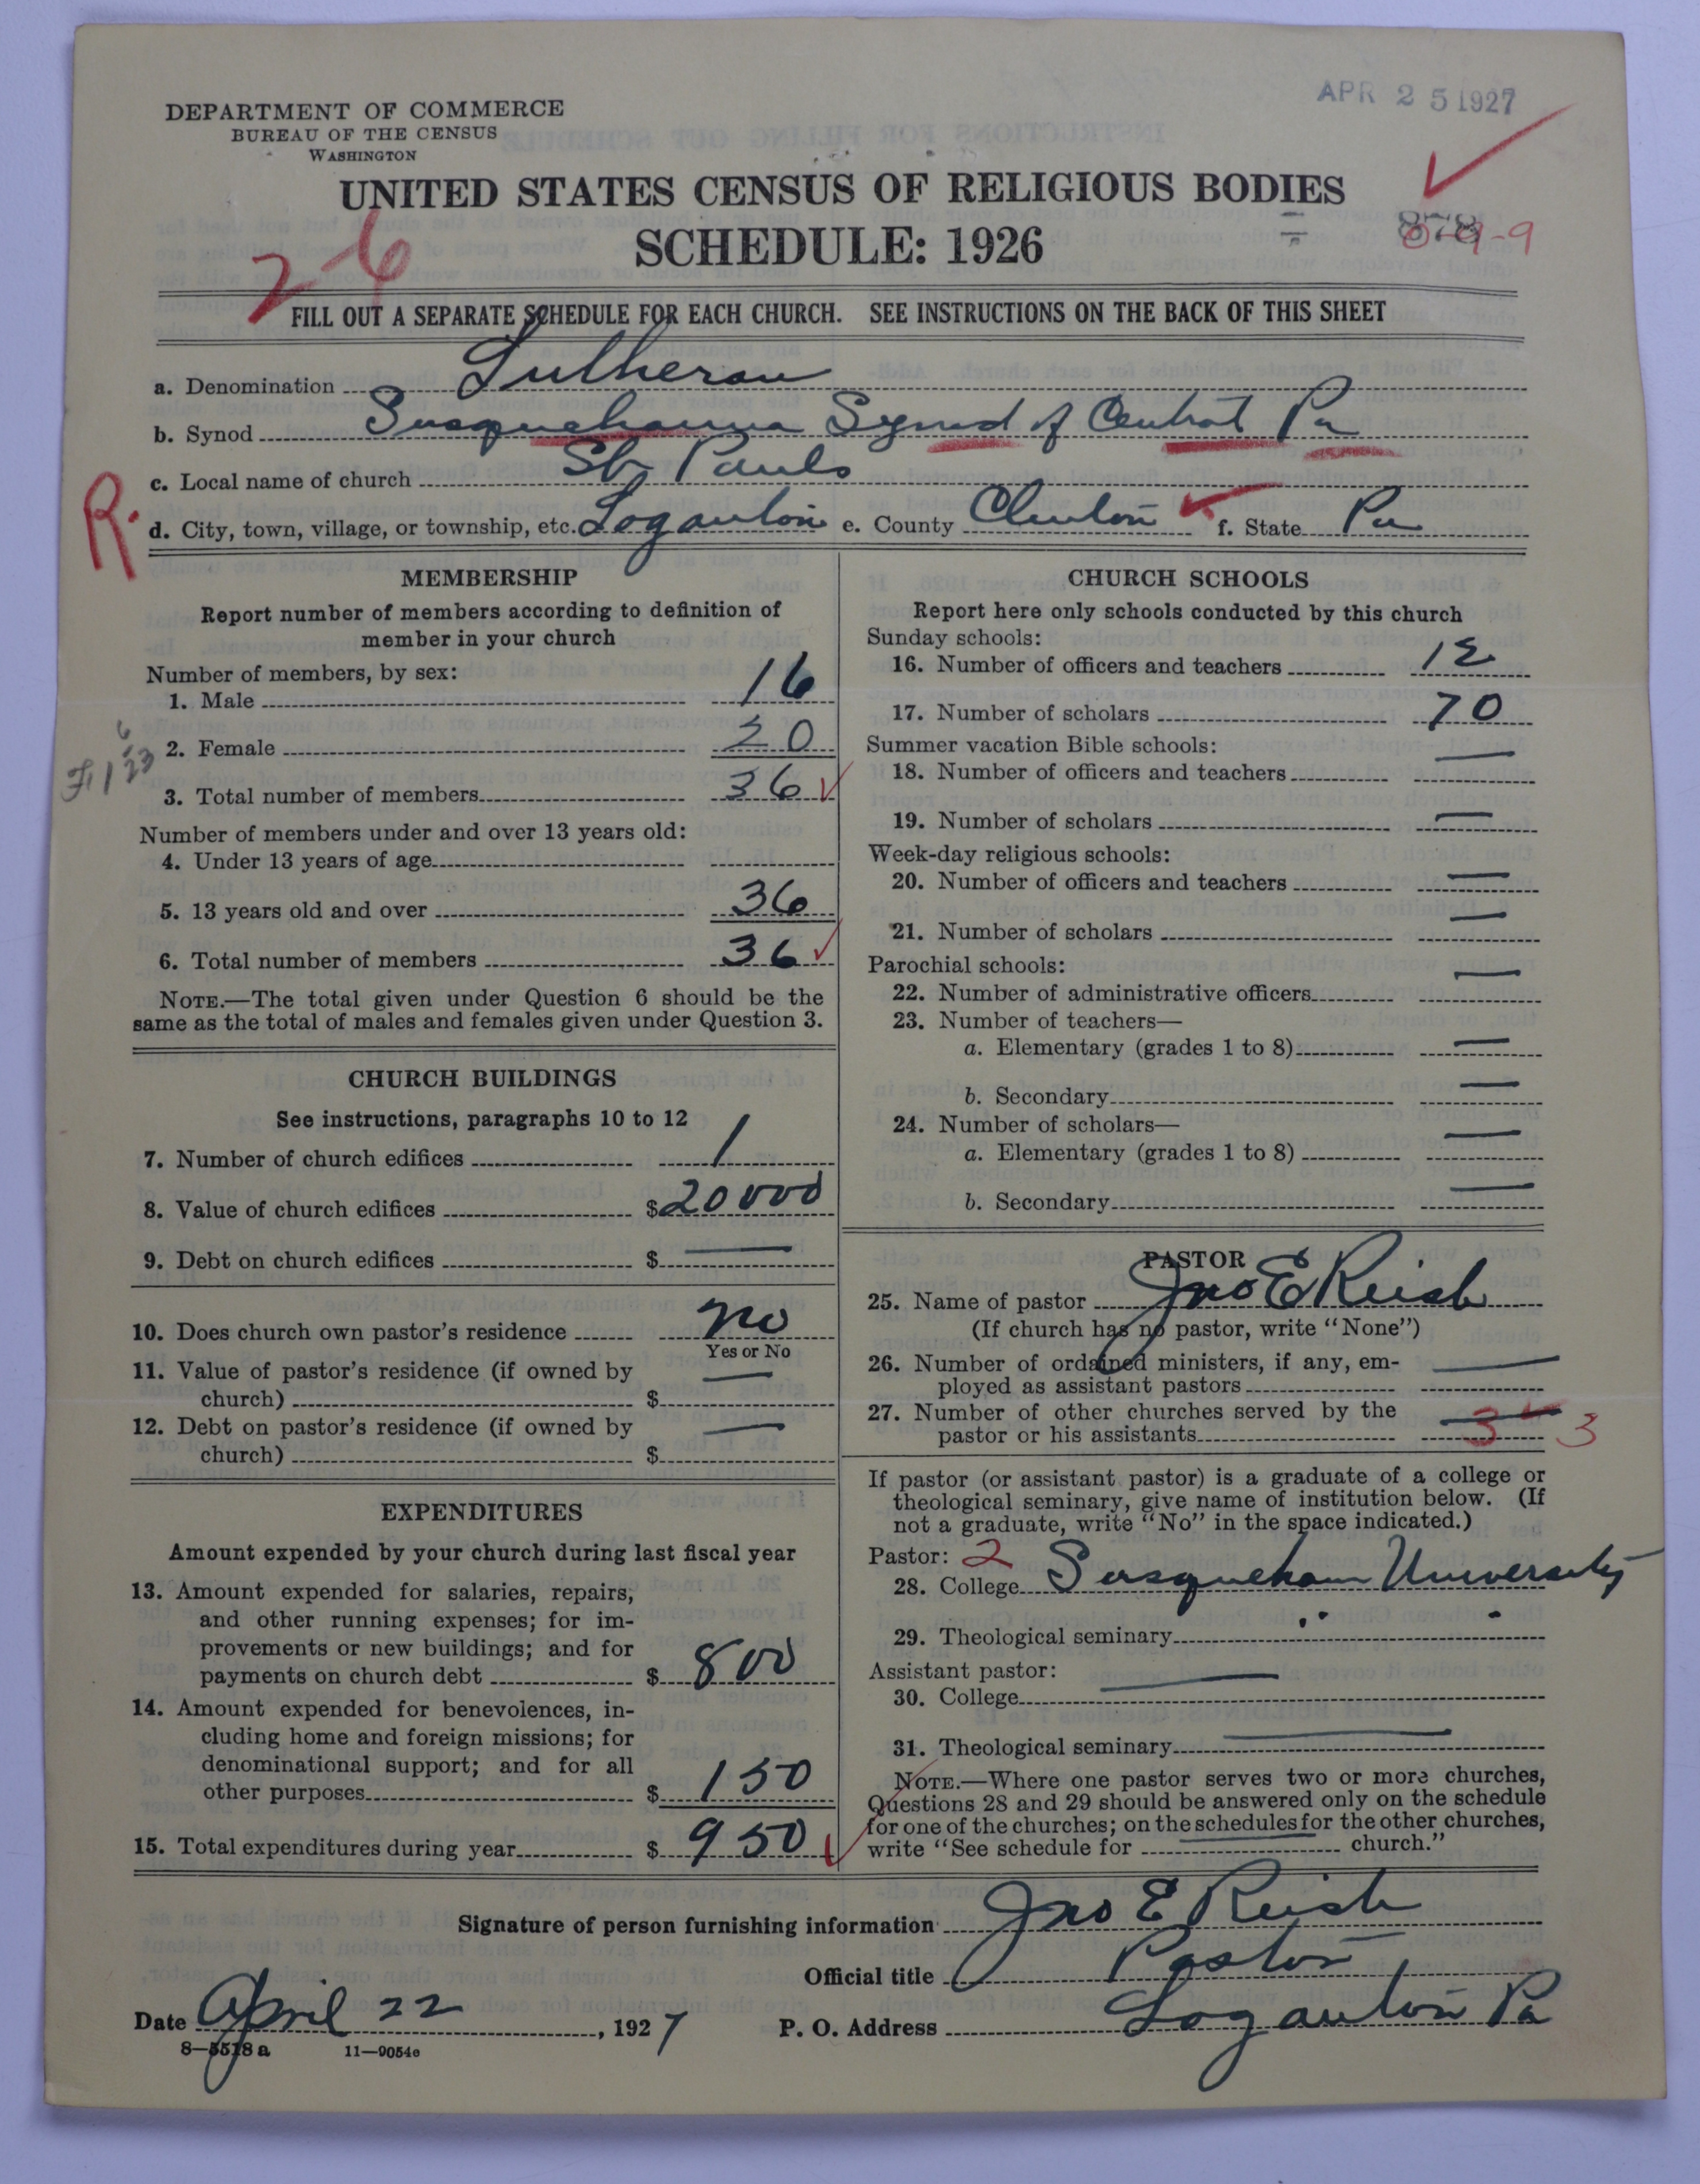 APR 25 1927
DEPARTMENT OF COMMERCE
BUREAU OF THE CENSUS
WASHINGTON
UNITED STATES CENSUS OF RELIGIOUS BODIES
SCHEDULE: 1926
2-6
FILL OUT A SEPARATE SCHEDULE FOR EACH CHURCH. SEE INSTRUCTIONS ON THE BACK OF THIS SHEET
a. Denomination Lutheran
b. Synod Susquehanna Synod of Central Pa
c. Local name of church St. Pauls
R.
d. City, town, village, or township, etc. Loganton e. County Clinton f. State Pa
MEMBERSHIP
Report number of members according to definition of
member in your church
Number of members, by sex:
1. Male 16
2. Female 20
3. Total number of members 36
Number of members under and over 13 years old:
4. Under 13 years of age
5. 13 years old and over 36
6. Total number of members 36
NOTE.—The total given under Question 6 should be the
same as the total of males and females given under Question 3.
CHURCH BUILDINGS
See instructions, paragraphs 10 to 12
7. Number of church edifices 1
8. Value of church edifices $20000
9. Debt on church edifices $ —
10. Does church own pastor's residence no
Yes or No
11. Value of pastor's residence (if owned by
church) $ —
12. Debt on pastor's residence (if owned by
church) $ —
EXPENDITURES
Amount expended by your church during last fiscal year
13. Amount expended for salaries, repairs,
and other running expenses; for im-
provements or new buildings; and for
payments on church debt $ 800
14. Amount expended for benevolences, in-
cluding home and foreign missions; for
denominational support; and for all
other purposes $ 150
15. Total expenditures during year $ 950
CHURCH SCHOOLS
Report here only schools conducted by this church
Sunday schools:
16. Number of officers and teachers 12
17. Number of scholars 70
Summer vacation Bible schools:
18. Number of officers and teachers —
19. Number of scholars —
Week-day religious schools:
20. Number of officers and teachers —
21. Number of scholars —
Parochial schools:
22. Number of administrative officers —
23. Number of teachers—
a. Elementary (grades 1 to 8) —
b. Secondary —
24. Number of scholars—
a. Elementary (grades 1 to 8) —
b. Secondary —
PASTOR
25. Name of pastor Jno E Reish
(If church has no pastor, write "None")
26. Number of ordained ministers, if any, em-
ployed as assistant pastors —
27. Number of other churches served by the
pastor or his assistants — 3 3
If pastor (or assistant pastor) is a graduate of a college or
theological seminary, give name of institution below. (If
not a graduate, write "No" in the space indicated.)
Pastor: 2
28. College Susquehanna University
29. Theological seminary " "
Assistant pastor:
30. College —
31. Theological seminary —
NOTE.—Where one pastor serves two or more churches,
Questions 28 and 29 should be answered only on the schedule
for one of the churches; on the schedules for the other churches,
write "See schedule for — church."
Signature of person furnishing information Jno E Reish
Official title Pastor
Date April 22, 1927 P. O. Address Loganton Pa
8—5518 a 11—9054c